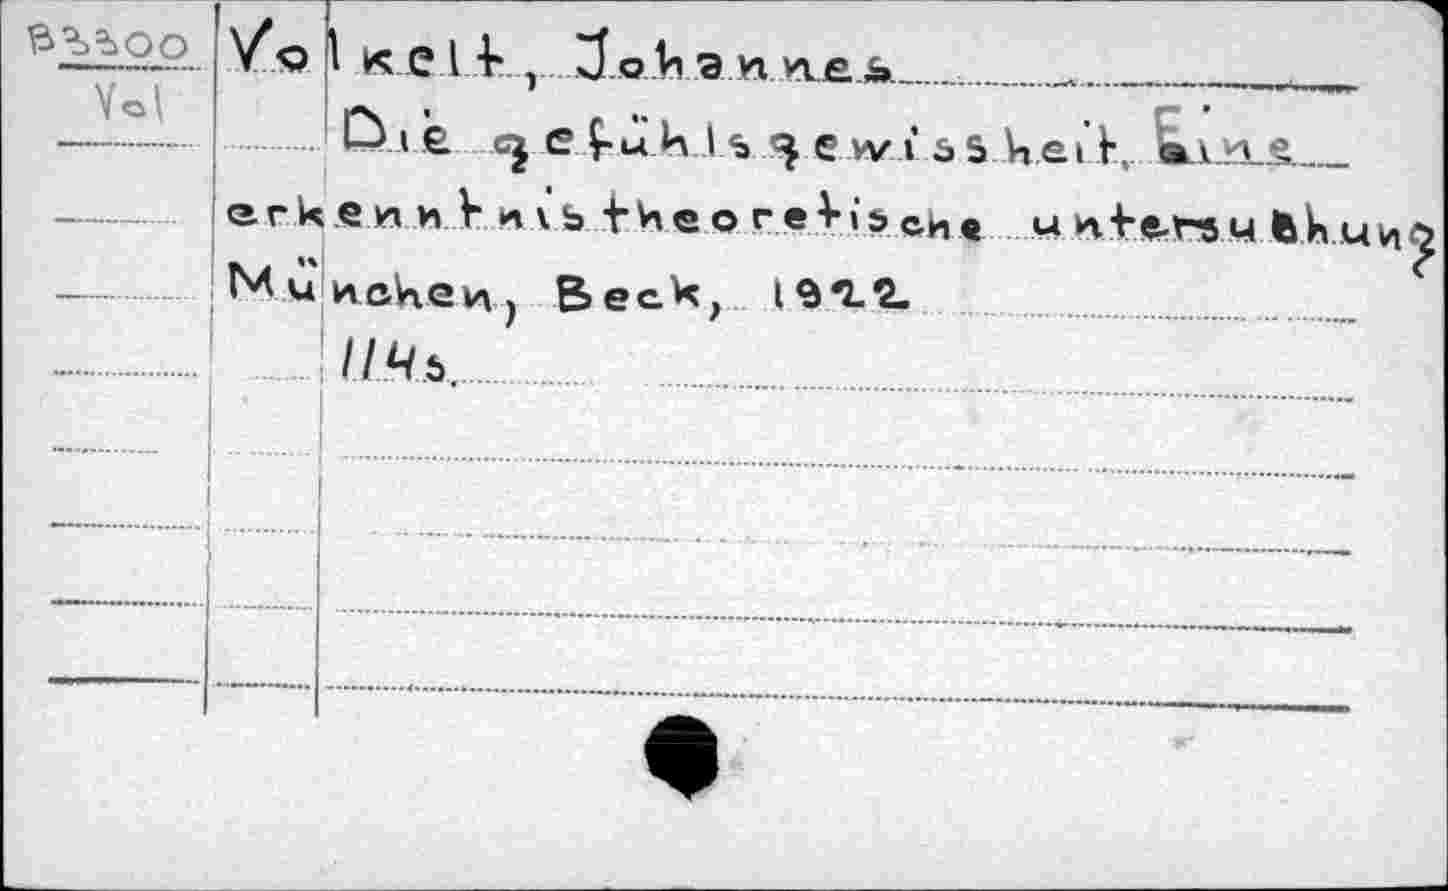 B33oo Volkelt, Johannes
Vol
Die gefühlsgewissheit, Eine
erkenntnis theoretische untersuchung
München, Beck, 1922
114s.